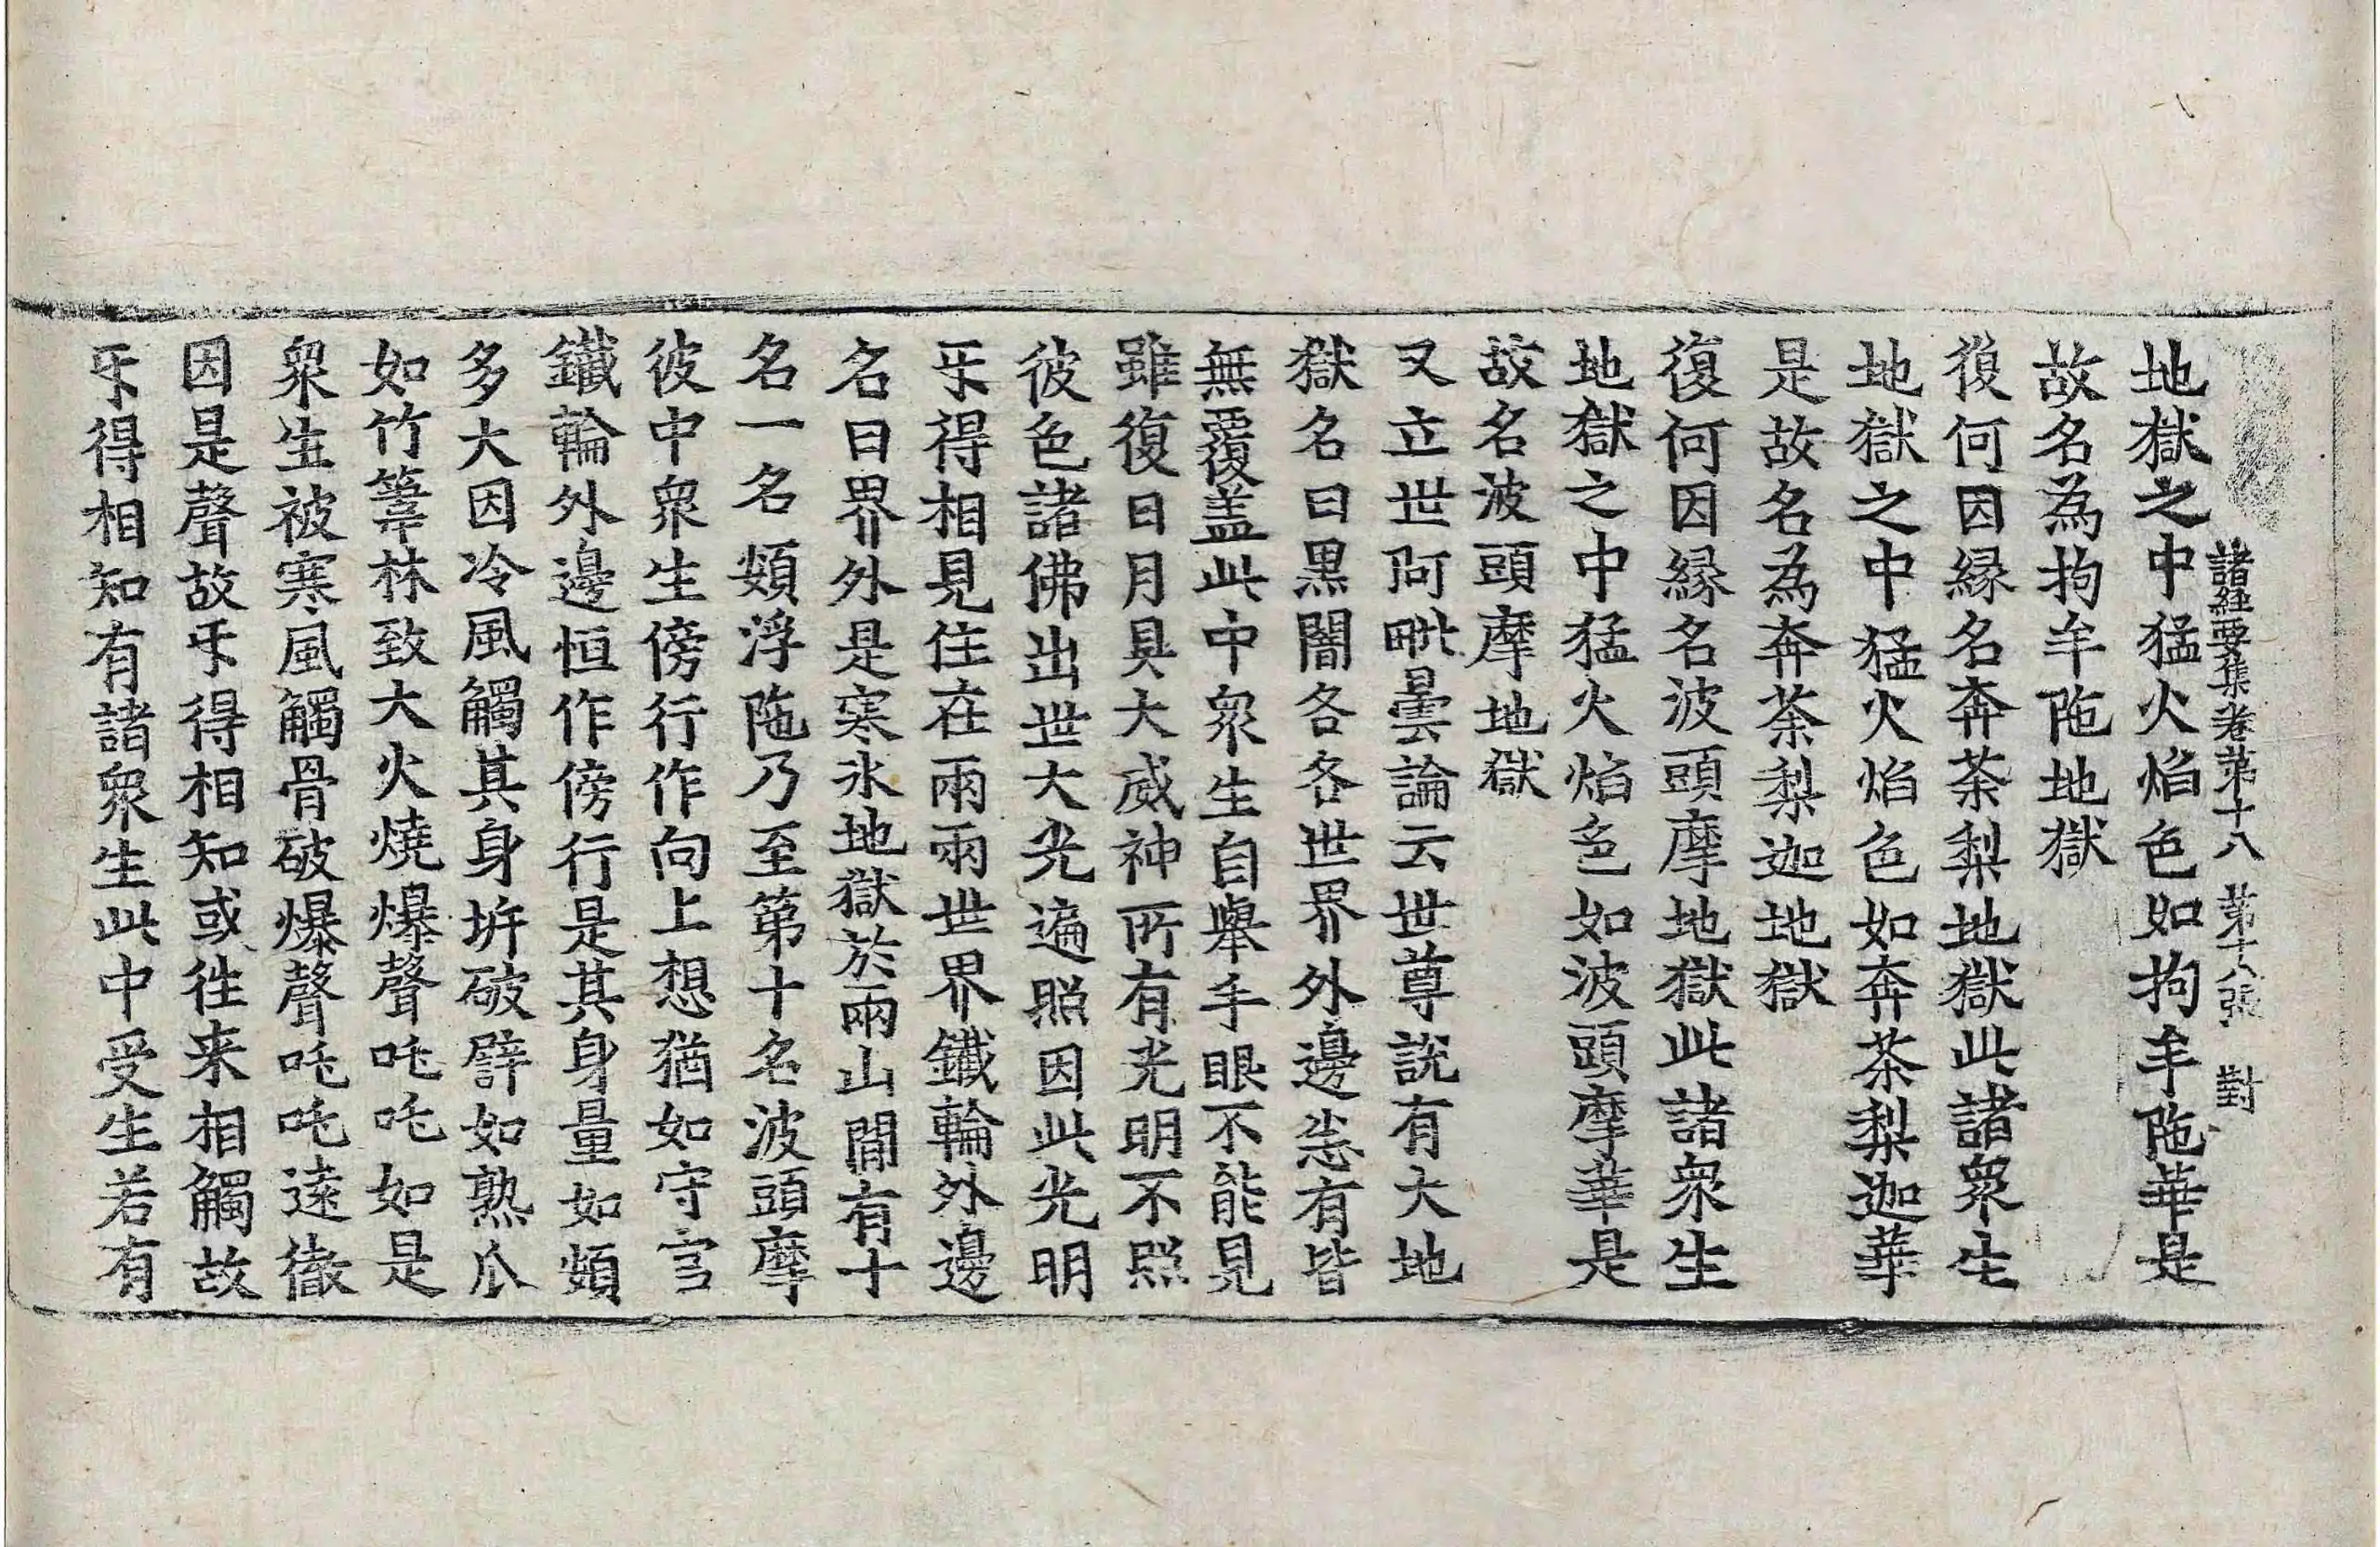 諸経要集卷第十八 第十八張 對
地獄之中猛火焰色如拘牟陁華是
故名為拘牟陁地獄
復何因縁名奔茶梨地獄此諸衆生
地獄之中猛火焰色如奔茶梨迦華
是故名為奔茶梨迦地獄
復何因縁名波頭摩地獄此諸衆生
地獄之中猛火焰色如波頭摩華是
故名波頭摩地獄
又立世阿毗曇論云世尊說有大地
獄名曰黒闇各各世界外邊悉有皆
無覆盖此中衆生自舉手眼不能見
雖復日月具大威神所有光明不照
彼色諸佛出世大光遍照因此光明
乐得相見住在兩兩世界鐵輪外邊
名曰界外是寒氷地獄於兩山間有十
名一名頞浮陁乃至第十名波頭摩
彼中衆生傍行作向上想猶如守宫
鐵輪外邊恒作傍行是其身量如頞
多大因冷風觸其身坼破譬如熟瓜
如竹葦林致大火燒爆聲吒吒如是
衆生被寒風觸骨破爆聲吒吒遠徹
因是聲故乐得相知或徃来相觸故
乐得相知有諸衆生此中受生若有